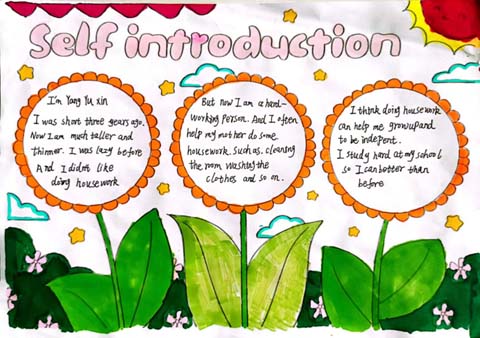 Self introduction
I'm Yang Yu xin
I was short three years ago.
Now I am much taller and
thinner. I was lazy before
And I didn't like
doing housework
But now I am a hard-
working person. And I often
help my mother do some
housework. such as. cleansing
the room washing the
clothes and so on.
I think doing housework
can help me grow upand
to be indepent.
I study hard at my school
so I can better than
before